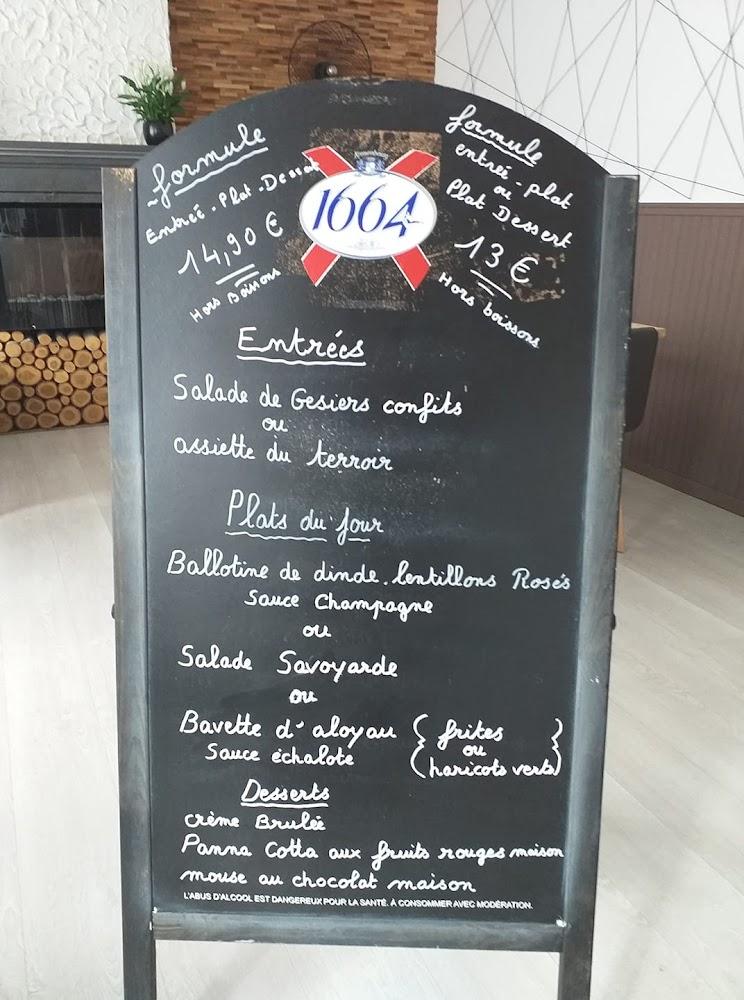 formule
Entrée - Plat - Dessert
14,90 €
Hors Boissons
1664
formule
entrée - plat
ou
Plat Dessert
13 €
Hors boissons
Entrées
Salade de Gesiers confits
ou
assiette du terroir
Plats du jour
Ballotine de dinde. lentillons Rosés
Sauce Champagne
ou
Salade Savoyarde
ou
Bavette d'aloyau { frites }
Sauce échalote { ou }
{ haricots verts }
Desserts
crème Brulée
Panna Cotta aux fruits rouges maison
mouse au chocolat maison
L'ABUS D'ALCOOL EST DANGEREUX POUR LA SANTÉ. À CONSOMMER AVEC MODÉRATION.